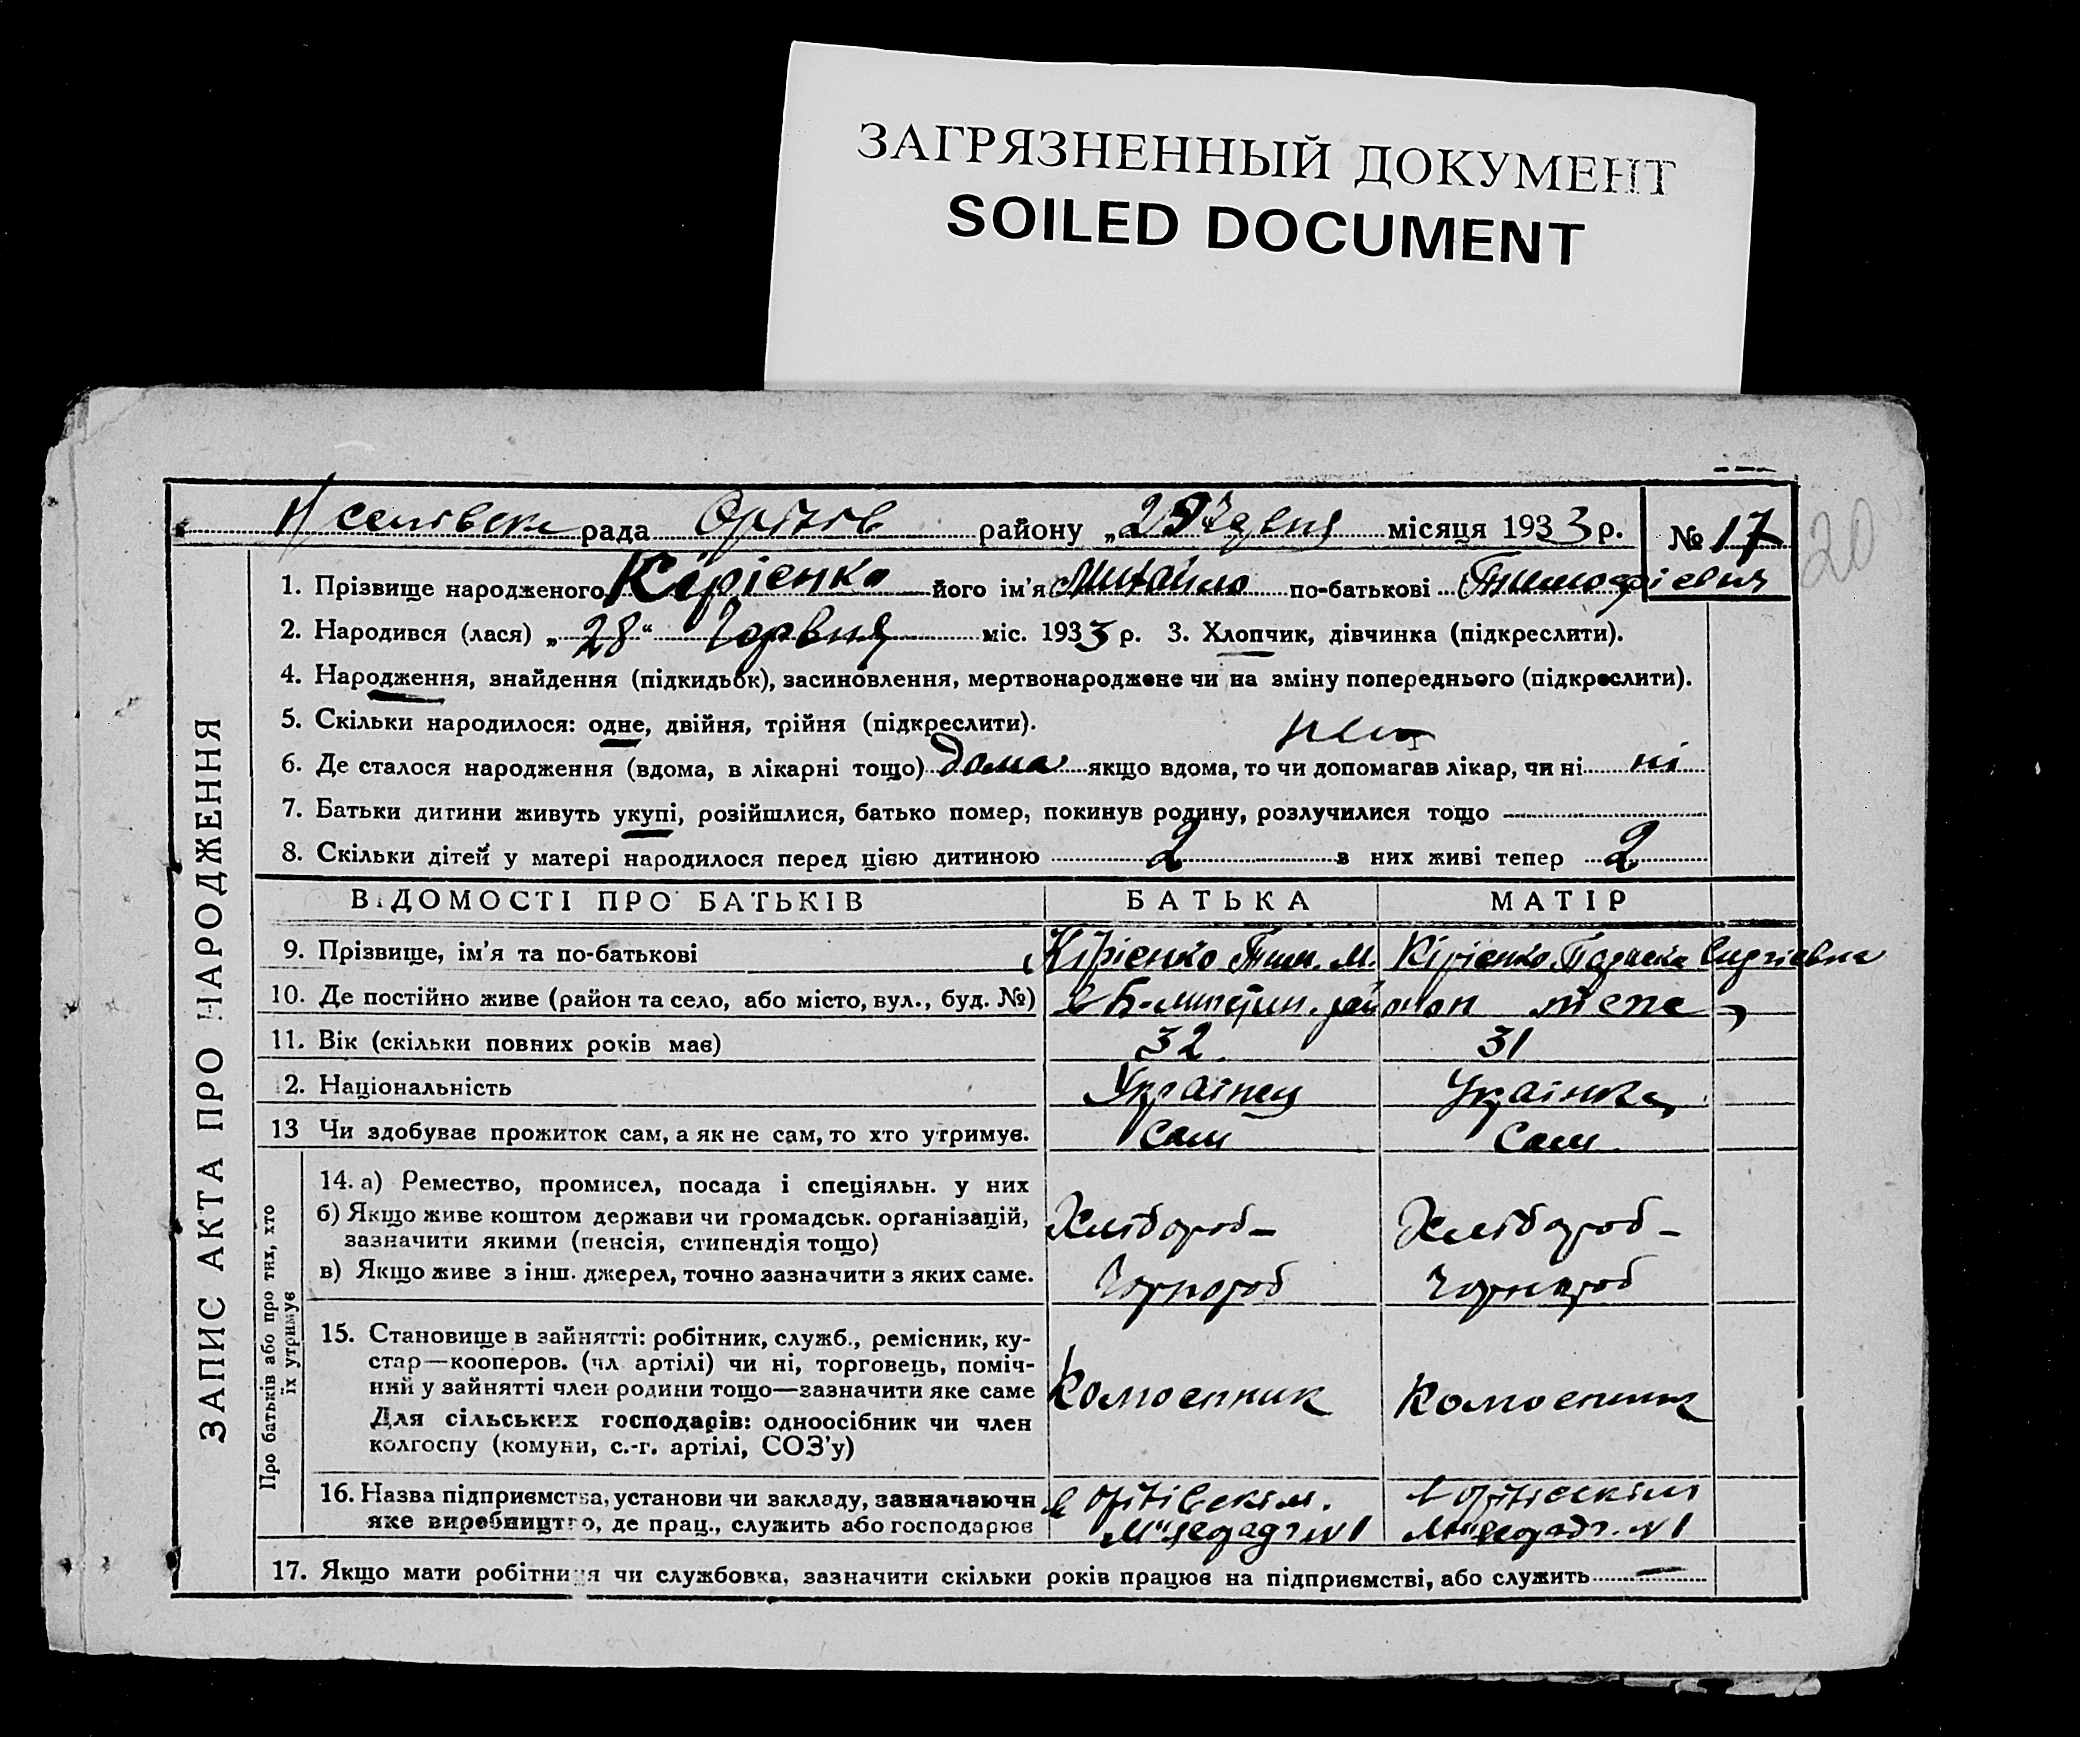 ЗАГРЯЗНЕННЫЙ ДОКУМЕНТ
SOILED DOCUMENT
рада району „29 місяця 1933 р. № 17
20
ЗАПИС АКТА ПРО НАРОДЖЕННЯ
1. Прізвище народженого Кірієнко його ім'я Михайло по-батькові Тимофієвич
2. Народився (лася) „28“ Червня міс. 1933 р. 3. Хлопчик, дівчинка (підкреслити).
4. Народження, знайдення (підкидьок), засиновлення, мертвонароджене чи на зміну попереднього (підкреслити).
5. Скільки народилося: одне, двійня, трійня (підкреслити).
6. Де сталося народження (вдома, в лікарні тощо) дома якщо вдома, то чи допомагав лікар, чи ні ні
7. Батьки дитини живуть укупі, розійшлися, батько помер, покинув родину, розлучилися тощо
8. Скільки дітей у матері народилося перед цією дитиною 2 в них живі тепер 2
ВІДОМОСТІ ПРО БАТЬКІВ БАТЬКА МАТІР
9. Прізвище, ім'я та по-батькові Кірієнко Тим. М. Кірієнко
10. Де постійно живе (район та село, або місто, вул., буд. №)
11. Вік (скільки повних років має) 32 31
12. Національність Українец Українка
13 Чи здобуває прожиток сам, а як не сам, то хто утримує. Сам Сам
Про батьків або про тих, хто їх утримує
14. а) Ремество, промисел, посада і спеціяльн. у них
б) Якщо живе коштом держави чи громадськ. організацій,
зазначити якими (пенсія, стипендія тощо) Хлібороб- Хлібороб-
в) Якщо живе з інш. джерел, точно зазначити з яких саме. Чорнороб Чорнороб
15. Становище в зайнятті: робітник, служб., ремісник, ку-
стар—кооперов. (чл артілі) чи ні, торговець, поміч-
ний у зайнятті член родини тощо—зазначити яке саме
Для сільських господарів: одноосібник чи член
колгоспу (комуни, с.-г. артілі, СОЗ'у)
16. Назва підприємства, установи чи закладу, зазначаючи
яке виробництво, де прац., служить або господарює
17. Якщо мати робітниця чи службовка, зазначити скільки років працює на підприємстві, або служить —